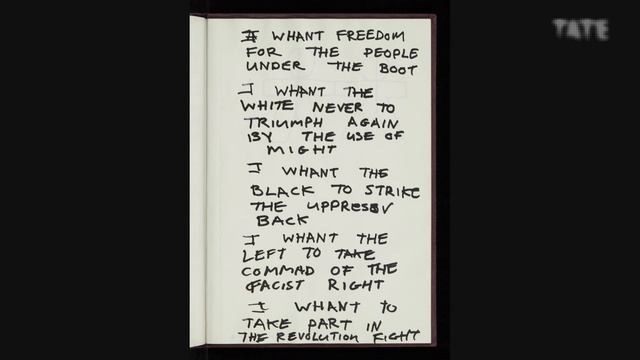 TATE
I WHANT FREEDOM
FOR THE PEOPLE
UNDER THE BOOT
I WHANT THE
WHITE NEVER TO
TRIUMPH AGAIN
BY THE USE OF
MIGHT
I WHANT THE
BLACK TO STRIKE
THE UPPRESSV
BACK
I WHANT THE
LEFT TO TAKE
COMMAD OF THE
FACIST RIGHT
I WHANT TO
TAKE PART IN
THE REVOLUTION FIGHT